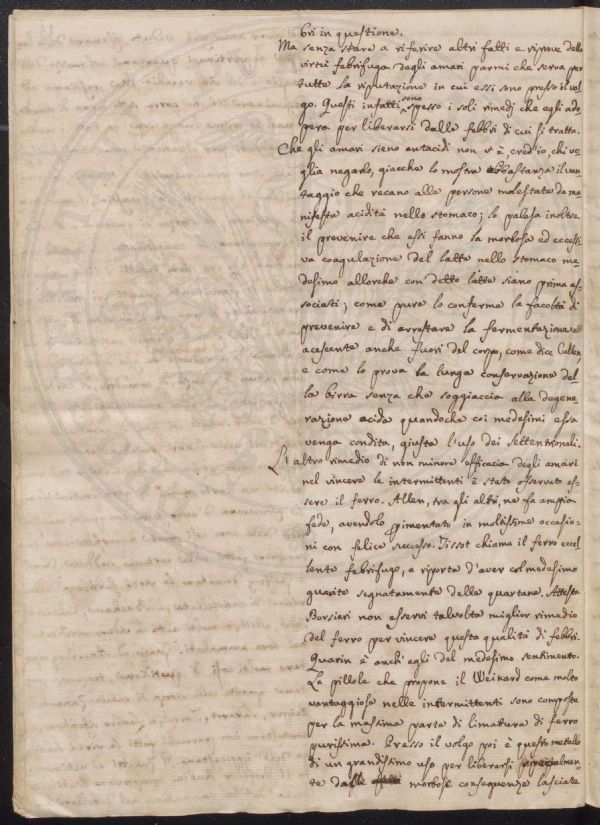 bri in questione.
Ma senza stare a riferire altri fatti e riprove della
virtù febrifuga degli amari parmi che serva per
tutte la riputazione in cui essi sono presso il vol-
go. Questi infatti sono spesso i soli rimedj che egli ado
pera per liberarsi dalle febbri di cui si tratta.
Che gli amari sieno antacidi non v'è, cred'io, chi vo
glia negarlo, giacchè lo mostra abbastanza il van
taggio che recano alle persone molestate da ma
nifesta acidità nello stomaco; lo palesa inoltre
il prevenire che essi fanno la morbosa ed eccessi
va coagulazione del latte nello stomaco me-
desimo allorchè con detto latte siano prima as-
sociati; come pure lo conferma la facoltà di
prevenire e di arrestare la fermentazione
acescente anche fuori del corpo, come dice Cullen
e come lo prova la lunga conservazione del-
la birra senza che soggiaccia alla degene-
razione acida quandochè coi medesimi essa
venga condita, giusta l'uso dei Settentrionali.
L'altro rimedio di non minore efficacia degli amari
nel vincere le intermittenti è stato osservato es-
sere il ferro. Allen, tra gli altri, ne fa ampia
fede, avendolo sperimentato in moltissime occasio-
ni con felice successo. Tissot chiama il ferro eccel
lente febrifugo, e riporta d'aver col medesimo
guarite segnatamente delle quartane. Attesta
Borsieri non esservi talvolta miglior rimedio
del ferro per vincere questa qualità di febbri.
Quarin è anch'egli del medesimo sentimento.
Le pillole che propone il Weikard come molto
vantaggiose nelle intermittenti sono composte
per la massima parte di limatura di ferro
purissima. Presso il volgo poi è questo metallo
di un grandissimo uso per liberarsi specialmen-
te dalle morbose conseguenze lasciate